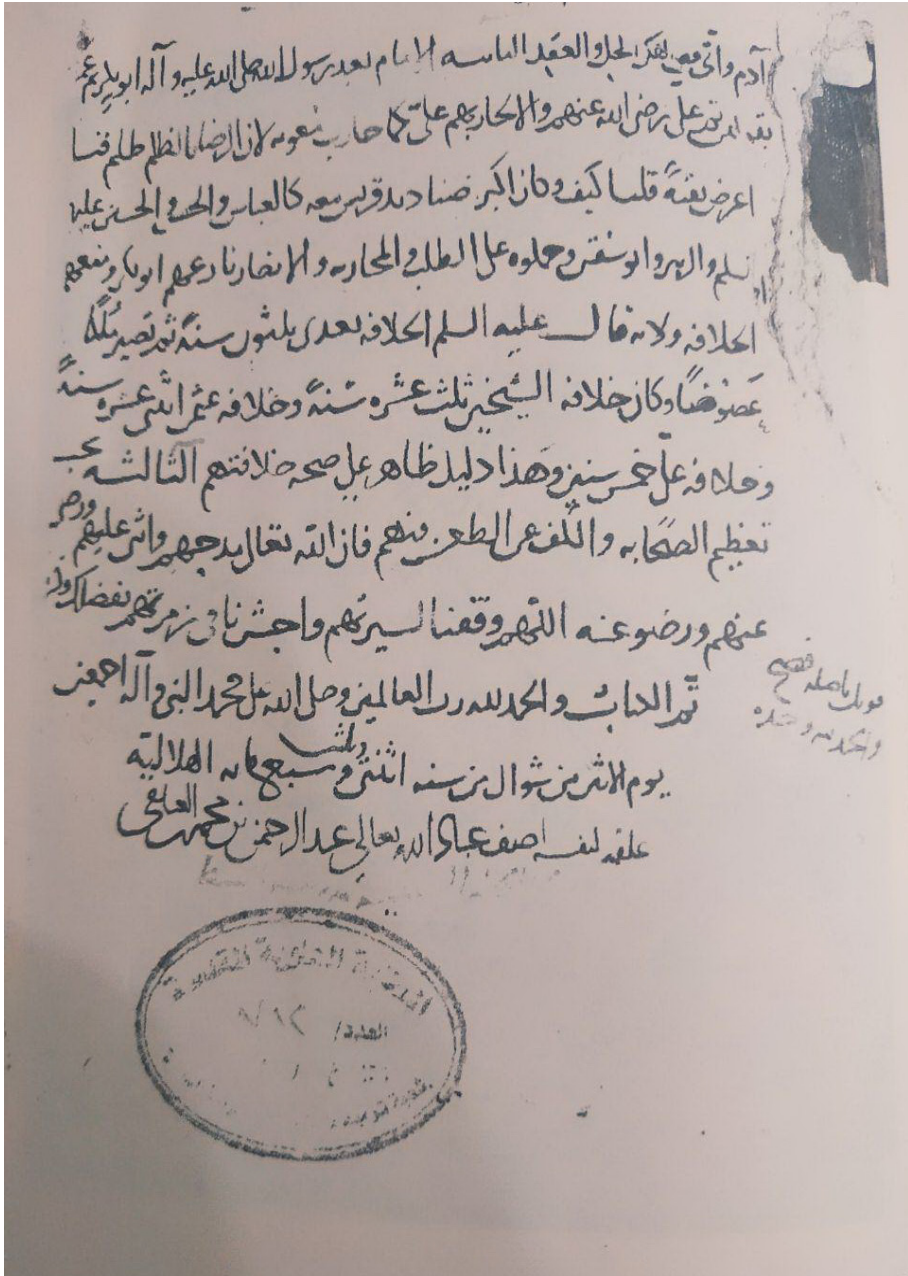 آدم واتى معى لفكر الحل والعقد الثامنه الامام بعد رسول الله صلى الله عليه وآله ابو بكر ثم
على رضى الله عنهم والا لحاربهم على كما حارب معويه لان الرضا بالظلم ظلم
اعرض تقيةً قلنا كيف وكان اكبر صناديد قريش معه كالعباس والحسن والحسين عليهما
السلم والزبير وابو سفين وحملوه على الطلب والمحاربه والانصار نازعهم ابو بكر ومنعهم
الخلافه ولانه قال عليه السلم الخلافه بعدى ثلثون سنةً ثم تصير مُلكًا
عضوضًا وكان خلافه الشيخين ثلث عشره سنةً وخلافه عثمن اثنى عشره سنةً
وخلافه على خمس سنين وهذا دليل ظاهر على صحه خلافتهم الثالثه يجب
تعظيم الصَّحابه والكف عن الطعن فيهم فان الله تعالى مدحهم واثنى عليهم ورضى
عنهم ورضو عنه اللهم وفقنا لسيرتهم واحشرنا فى زمرتهم بفضلك
تم الكتاب والحمد لله رب العالمين وصلى الله على محمد النبى وآله اجمعين
يوم الاثنين من شوال من سنه اثنتى وثلثين وسبع مايه الهلاليه
علقه لنفسه اضعف عباد الله تعالى عبد الرحمن بن محمد
قوبل باصله فصح
والحمد لله وحده
العدد